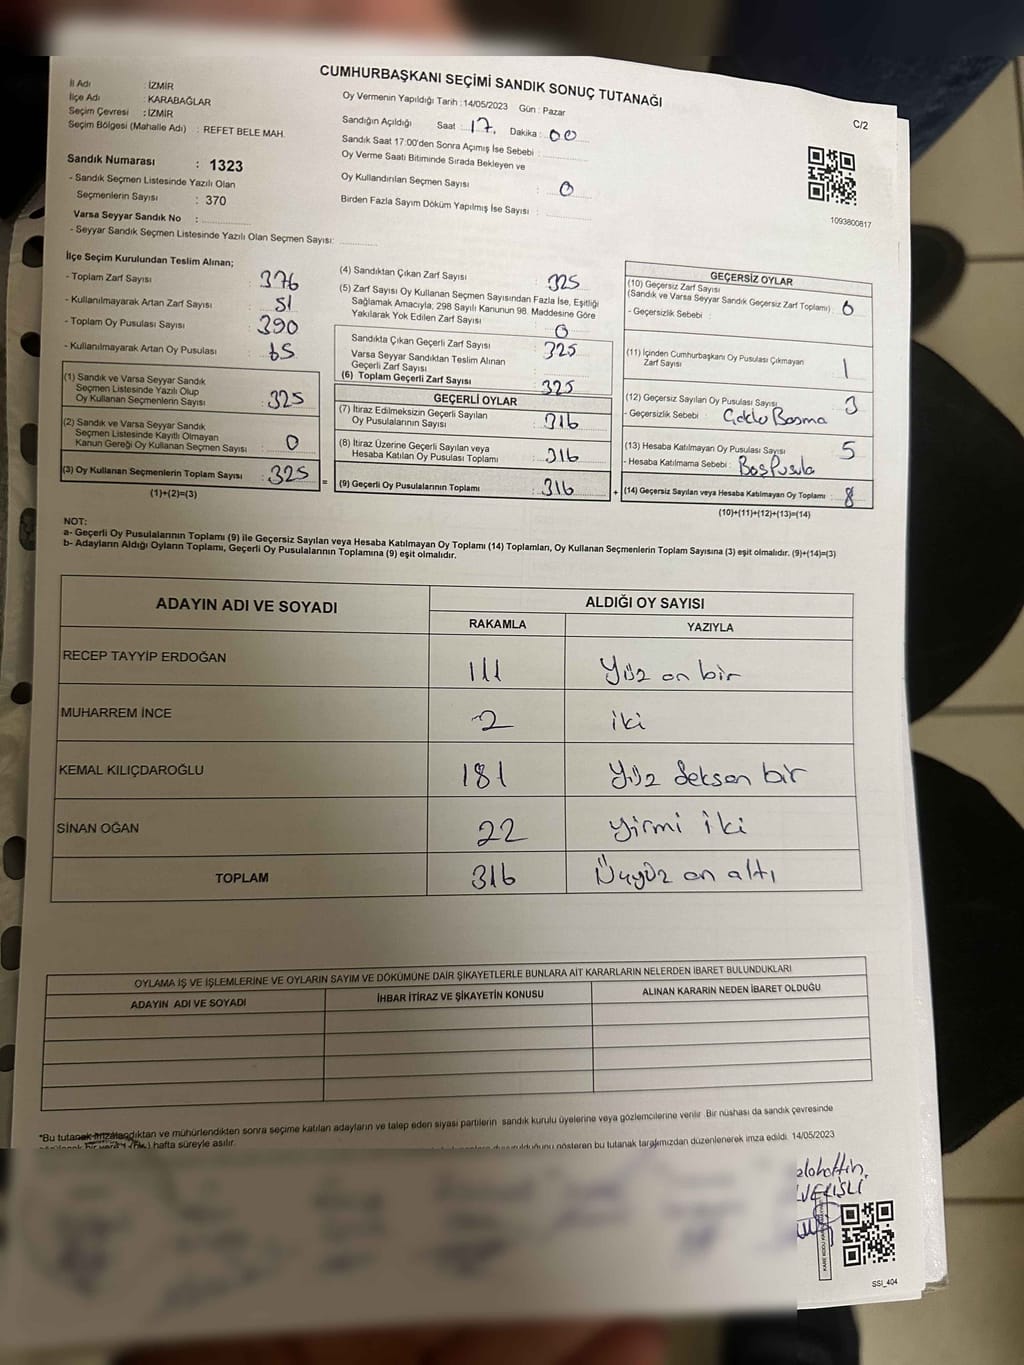 CUMHURBAŞKANI SEÇİMİ SANDIK SONUÇ TUTANAĞI
C/2
İl Adı : İZMİR
İlçe Adı : KARABAĞLAR
Seçim Çevresi : İZMİR
Seçim Bölgesi (Mahalle Adı) : REFET BELE MAH.
Sandık Numarası : 1323
- Sandık Seçmen Listesinde Yazılı Olan
Seçmenlerin Sayısı : 370
Varsa Seyyar Sandık No :
- Seyyar Sandık Seçmen Listesinde Yazılı Olan Seçmen Sayısı:
Oy Vermenin Yapıldığı Tarih :14/05/2023 Gün : Pazar
Sandığın Açıldığı Saat : 17. Dakika : 00
Sandık Saat 17:00'den Sonra Açımış İse Sebebi :
Oy Verme Saati Bitiminde Sırada Bekleyen ve
Oy Kullandırılan Seçmen Sayısı : 0
Birden Fazla Sayım Döküm Yapılmış İse Sayısı :
1093800817
İlçe Seçim Kurulundan Teslim Alınan;
- Toplam Zarf Sayısı : 376
- Kullanılmayarak Artan Zarf Sayısı : 51
- Toplam Oy Pusulası Sayısı : 390
- Kullanılmayarak Artan Oy Pusulası : 65
(1) Sandık ve Varsa Seyyar Sandık
Seçmen Listesinde Yazılı Olup
Oy Kullanan Seçmenlerin Sayısı : 325
(2) Sandık ve Varsa Seyyar Sandık
Seçmen Listesinde Kayıtlı Olmayan
Kanun Gereği Oy Kullanan Seçmen Sayısı : 0
(3) Oy Kullanan Seçmenlerin Toplam Sayısı : 325 =
(1)+(2)=(3)
(4) Sandıktan Çıkan Zarf Sayısı : 325
(5) Zarf Sayısı Oy Kullanan Seçmen Sayısından Fazla İse, Eşitliği
Sağlamak Amacıyla; 298 Sayılı Kanunun 98. Maddesine Göre
Yakılarak Yok Edilen Zarf Sayısı : 0
Sandıkta Çıkan Geçerli Zarf Sayısı : 325
Varsa Seyyar Sandıktan Teslim Alınan
Geçerli Zarf Sayısı :
(6) Toplam Geçerli Zarf Sayısı : 325
GEÇERLİ OYLAR
(7) İtiraz Edilmeksizin Geçerli Sayılan
Oy Pusulalarının Sayısı : 316
(8) İtiraz Üzerine Geçerli Sayılan veya
Hesaba Katılan Oy Pusulaları Toplamı : 316
(9) Geçerli Oy Pusulalarının Toplamı : 316 +
GEÇERSİZ OYLAR
(10) Geçersiz Zarf Sayısı
(Sandık ve Varsa Seyyar Sandık Geçersiz Zarf Toplamı) : 0
- Geçersizlik Sebebi :
(11) İçinden Cumhurbaşkanı Oy Pusulası Çıkmayan
Zarf Sayısı : 1
(12) Geçersiz Sayılan Oy Pusulası Sayısı : 3
- Geçersizlik Sebebi : Çoklu Basma
(13) Hesaba Katılmayan Oy Pusulası Sayısı : 5
- Hesaba Katılmama Sebebi : Boş Pusula
(14) Geçersiz Sayılan veya Hesaba Katılmayan Oy Toplamı : 8
(10)+(11)+(12)+(13)=(14)
NOT:
a- Geçerli Oy Pusulalarının Toplamı (9) ile Geçersiz Sayılan veya Hesaba Katılmayan Oy Toplamı (14) Toplamları, Oy Kullanan Seçmenlerin Toplam Sayısına (3) eşit olmalıdır. (9)+(14)=(3)
b- Adayların Aldığı Oyların Toplamı, Geçerli Oy Pusulalarının Toplamına (9) eşit olmalıdır.
ADAYIN ADI VE SOYADI
ALDIĞI OY SAYISI
RAKAMLA YAZIYLA
RECEP TAYYİP ERDOĞAN 111 Yüz on bir
MUHARREM İNCE 2 iki
KEMAL KILIÇDAROĞLU 181 Yüz Seksen bir
SİNAN OĞAN 22 yirmi iki
TOPLAM 316 Üçyüz on altı
OYLAMA İŞ VE İŞLEMLERİNE VE OYLARIN SAYIM VE DÖKÜMÜNE DAİR ŞİKAYETLERLE BUNLARA AİT KARARLARIN NELERDEN İBARET BULUNDUKLARI
ADAYIN ADI VE SOYADI İHBAR İTİRAZ VE ŞİKAYETİN KONUSU ALINAN KARARIN NEDEN İBARET OLDUĞU
*Bu tutanak imzalandıktan ve mühürlendikten sonra seçime katılan adayların ve talep eden siyasi partilerin sandık kurulu üyelerine veya gözlemcilerine verilir. Bir nüshası da sandık çevresinde
hafta süreyle asılır.
gösteren bu tutanak tarafımızdan düzenlenerek imza edildi. 14/05/2023
SSI_404